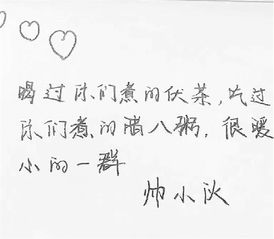 喝过你们煮的伏茶,吃过
你们煮的腊八粥,很暖
小的一群
帅小伙